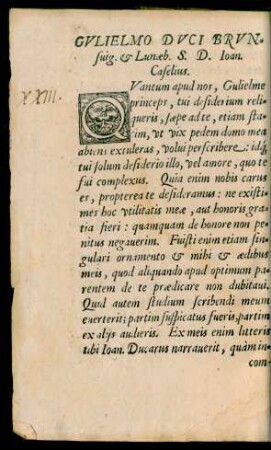 GVLIELMO DVCI BRVN-
suig. & Lunæb. S. D. Ioan.
Caselius.
XXIII.
QVantum apud nos, Gulielme
princeps, tui desiderium reli-
queris, sæpe ad te, etiam sta-
im, vt vix pedem domo mea
abiens extuleras, volui perscribere: idq́;
tui solum desiderio illo, vel amore, quo te
sui complexus. Quia enim nobis carus
es, propterea te desideramus: ne existi-
mes hoc vtilitatis meæ, aut honoris gra-
tia fieri: quamquam de honore non pe-
nitus negauerim. Fuisti enim etiam sin-
gulari ornamento & mihi & ædibus
meis, quod aliquando apud optimum pa-
rentem de te prædicare non dubitaui.
Quid autem studium scribendi meum
euerterit; partim suspicatus fueris, partim
ex alijs audieris. Ex meis enim litteris
tibi Ioan. Ducarus narrauerit, quàm in-
com-